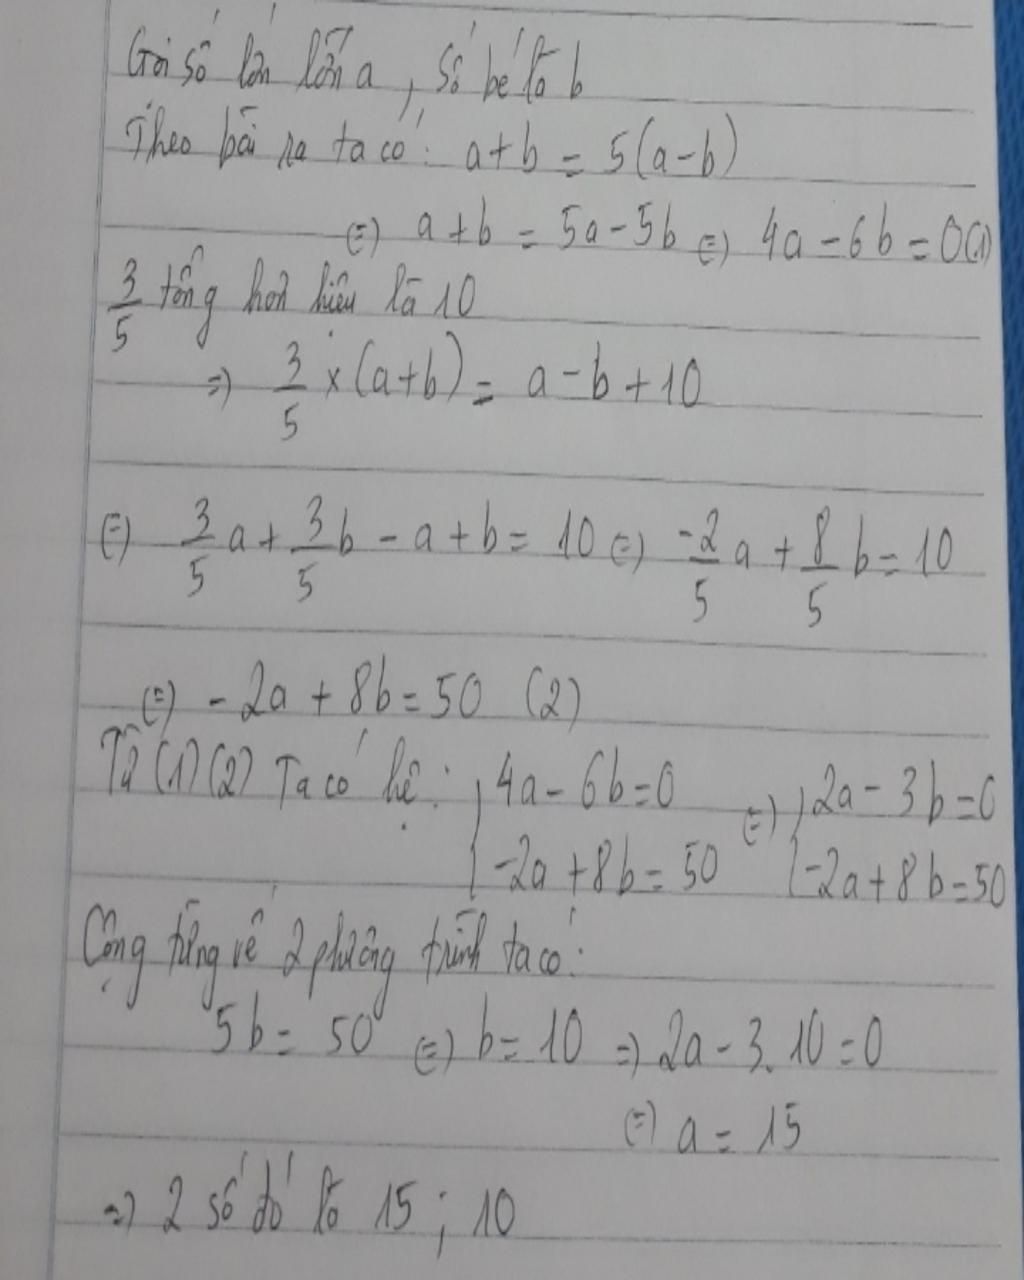 Gọi số lớn là a, số bé là b
Theo bài ra ta có: a+b = 5(a-b)
(=) a+b = 5a-5b (=) 4a-6b=0(1)
3/5 tổng hơn hiệu là 10
=) 3/5 x (a+b) = a-b+10
(=) 3/5 a + 3/5 b - a + b = 10 (=) -2/5 a + 8/5 b = 10
(=) -2a + 8b = 50 (2)
Từ (1)(2) Ta có hệ: { 4a-6b=0 (=) { 2a-3b=0
-2a+8b=50 -2a+8b=50
Cộng từng vế 2 phương trình ta có:
5b = 50 (=) b=10 =) 2a-3.10=0
(=) a = 15
=) 2 số đó là 15; 10